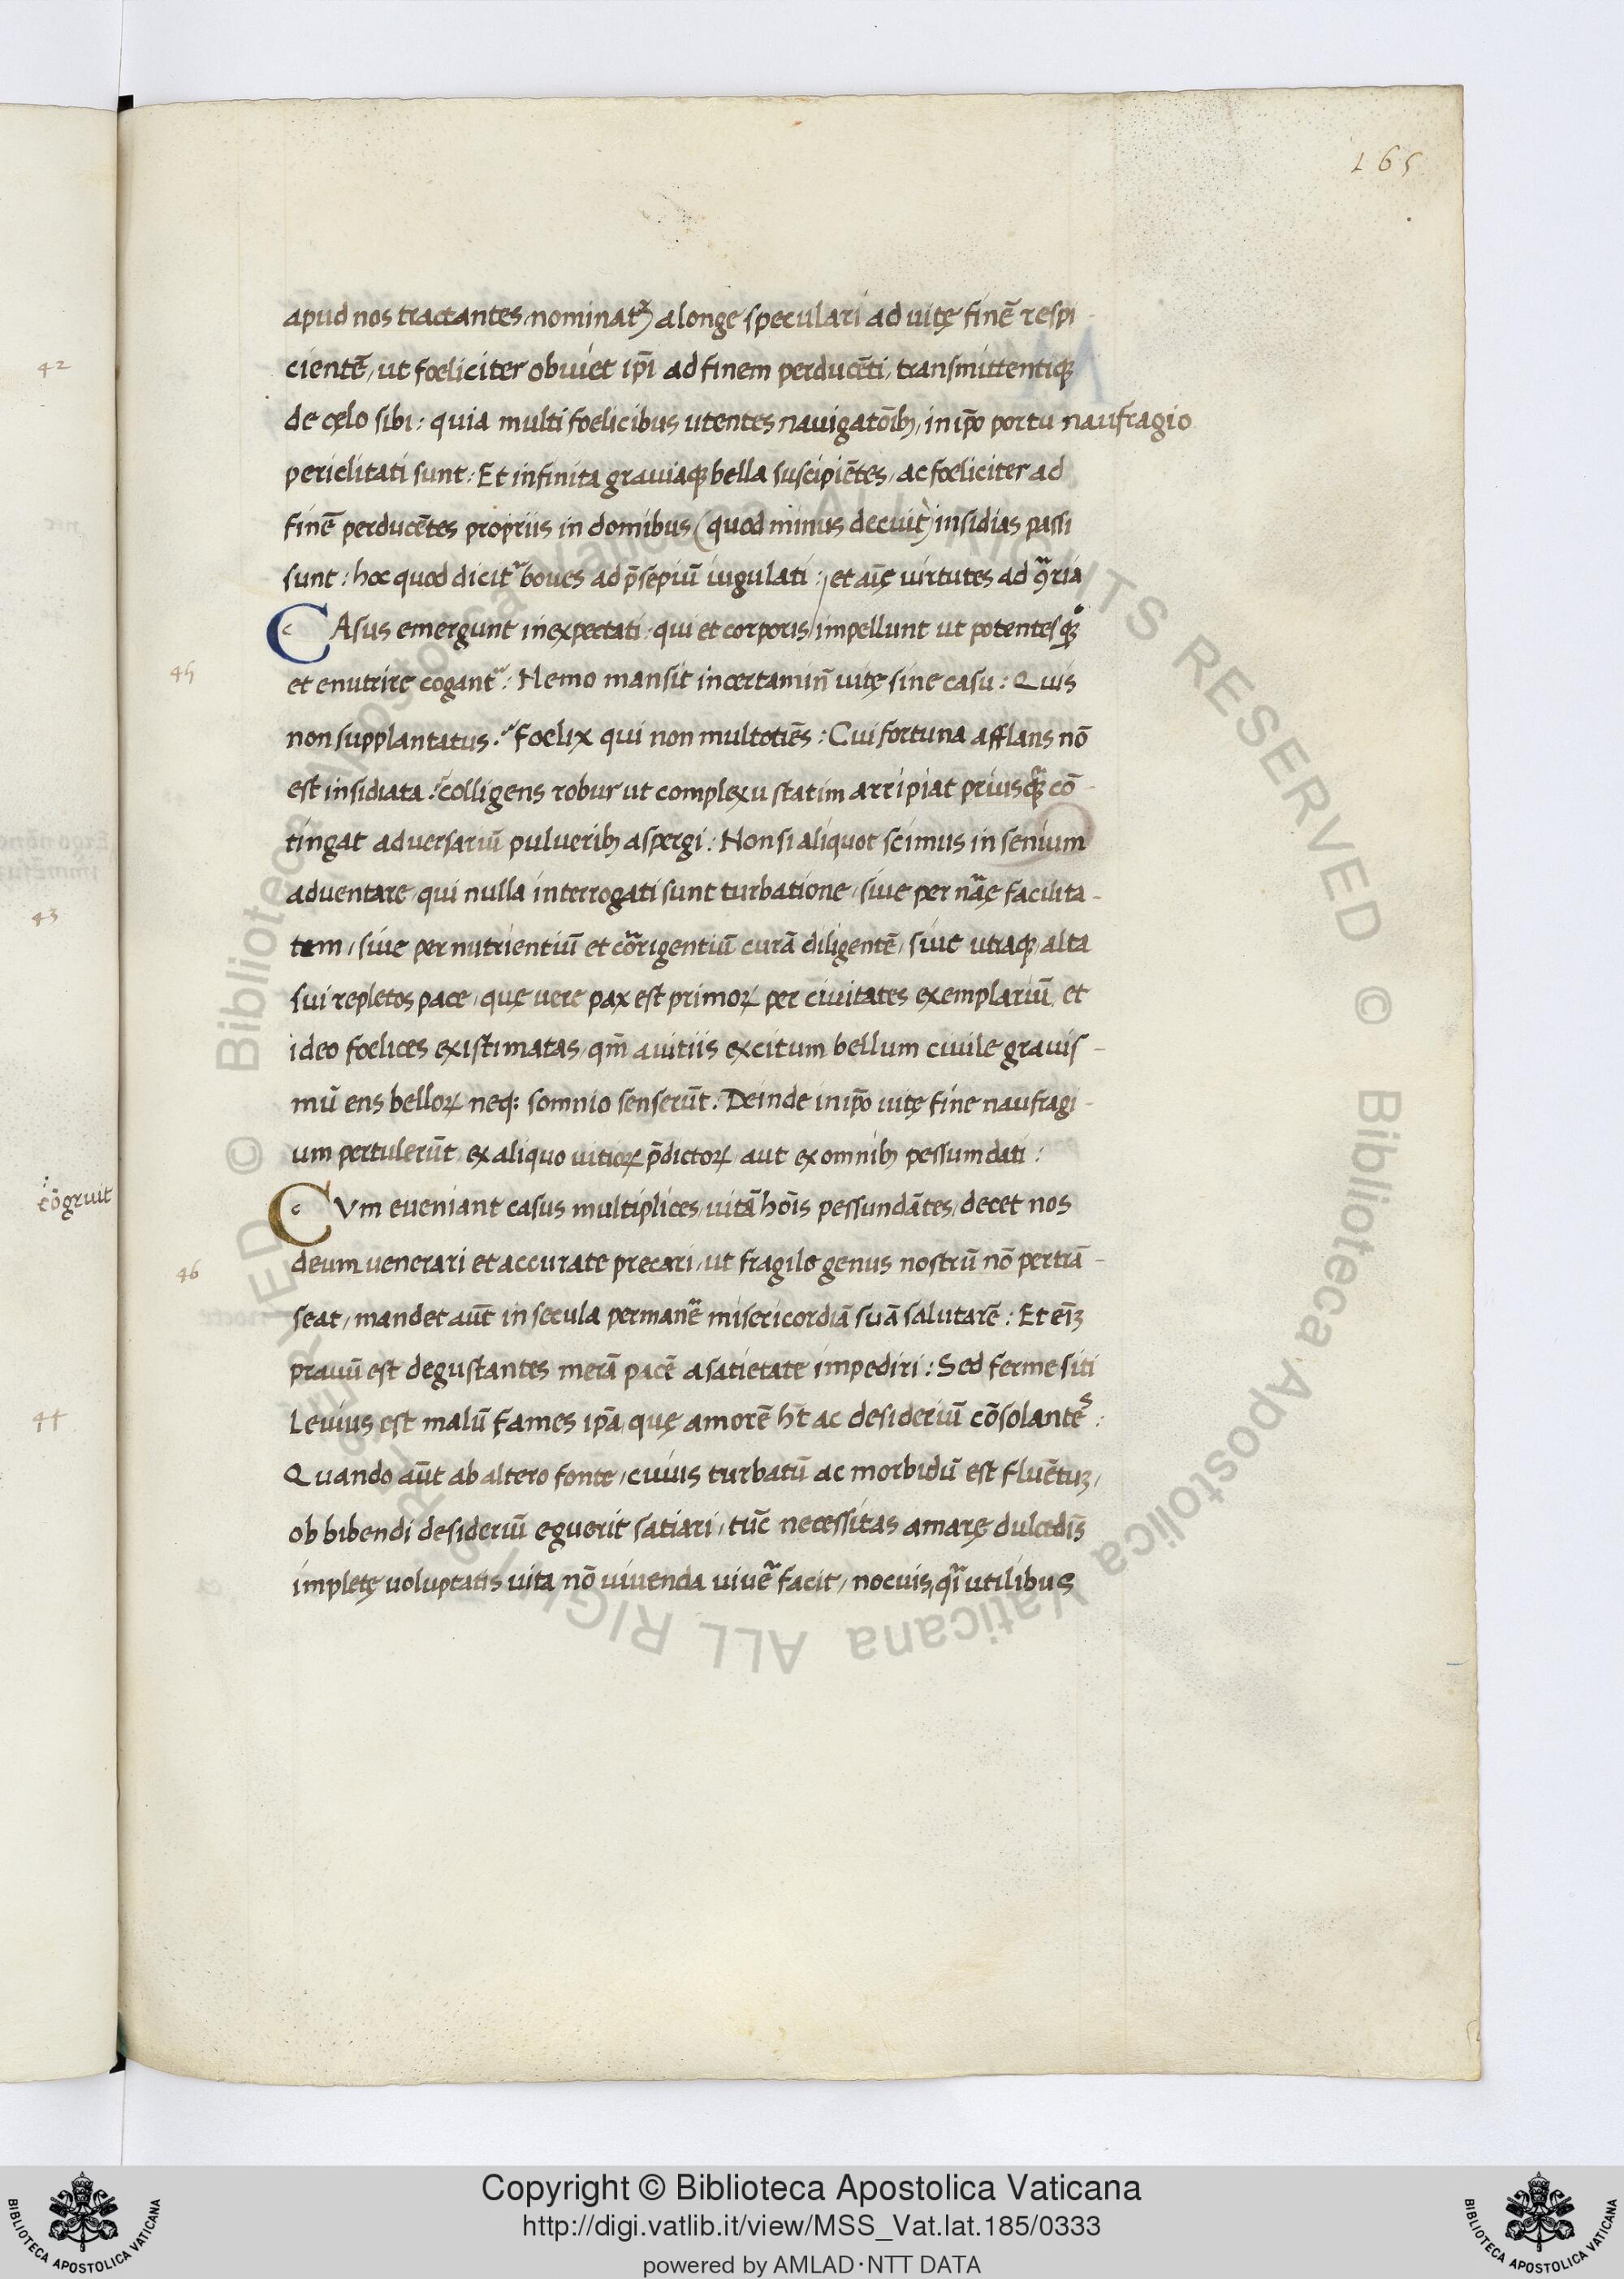 165
apud nos tractantes, nominat᷑) alonge speculari ad uitę finē respi-
cientē, ut fœliciter obuiet ip̄i ad finem perducēti, transmittentiqꝫ
de cęlo sibi: quia multi fœlicibus utentes nauigatōibꝫ, in ip̄o portu naufragio
periclitati sunt: Et infinita grauiaqꝫ bella suscipiētes, ac fœliciter ad
finē perducētes propriis in domibus (quod minus decuit) insidias passi
sunt: hoc quod dicit᷑ boues ad p̄sepiū iugulati: et aīę uirtutes ad ꝯ̄ria
CAsus emergunt inexpectati, qui et corporis impellunt ut potentesqꝫ
et enutrire cogant᷑: Nemo mansit in certamin̄ uitę sine casu: Quis
non supplantatus? Fœlix qui non multotiēs: Cui fortuna afflans nō
est insidiata? colligens robur ut complexu statim arripiat priusqꝫ̄ cō-
tingat aduersariū pulueribꝫ aspergi: Non si aliquot scimus in senium
aduentare, qui nulla interrogati sunt turbatione, siue per nāę facilita-
tem, siue per nutrientiū et cōrrigentiū curā diligentē, siue utraqꝫ, alta
sui repletos pace, quę uere pax est primoꝝ per ciuitates exemplariū, et
ideo fœlices existimatas, qm̄ auitiis excitum bellum ciuile grauis-
mū ens belloꝝ neqꝫ somnio senserūt. Deinde in ip̄o uitę fine naufragi-
um pertulerūt ex aliquo uitioꝝ p̄dictoꝝ aut ex omnibꝫ pessumdati:
CVm eueniant casus multiplices, uitā hoīs pessundātes, decet nos
deum uenerari et accurate precari, ut fragile genus nostrū nō pertrā-
seat, mandet aūt in secula permanē misericordiā suā salutarē: Et eīꝫ
prauū est degustantes merā pacē asatietate impediri: Sed ferme siti
Leuius est malū fames ip̄a, quę amorē ht̄ ac desideriū cōsolantēˢ:
Quando aūt ab altero fonte, cuius turbatū ac morbidū est fluētuꝫ,
ob bibendi desideriū eguerit satiari, tūc necessitas amarę dulcedīs
impletę uoluptatis uita nō uiuenda uiuē facit, nocuis, qī utilibus
45
46
42
43
cōgruit
44
Copyright © Biblioteca Apostolica Vaticana
http://digi.vatlib.it/view/MSS_Vat.lat.185/0333
powered by AMLAD·NTT DATA
BIBLIOTECA APOSTOLICA VATICANA
BIBLIOTECA APOSTOLICA VATICANA
© Biblioteca Apostolica Vaticana ALL RIGHTS RESERVED © Biblioteca Apostolica Vaticana ALL RIGHTS RESERVED